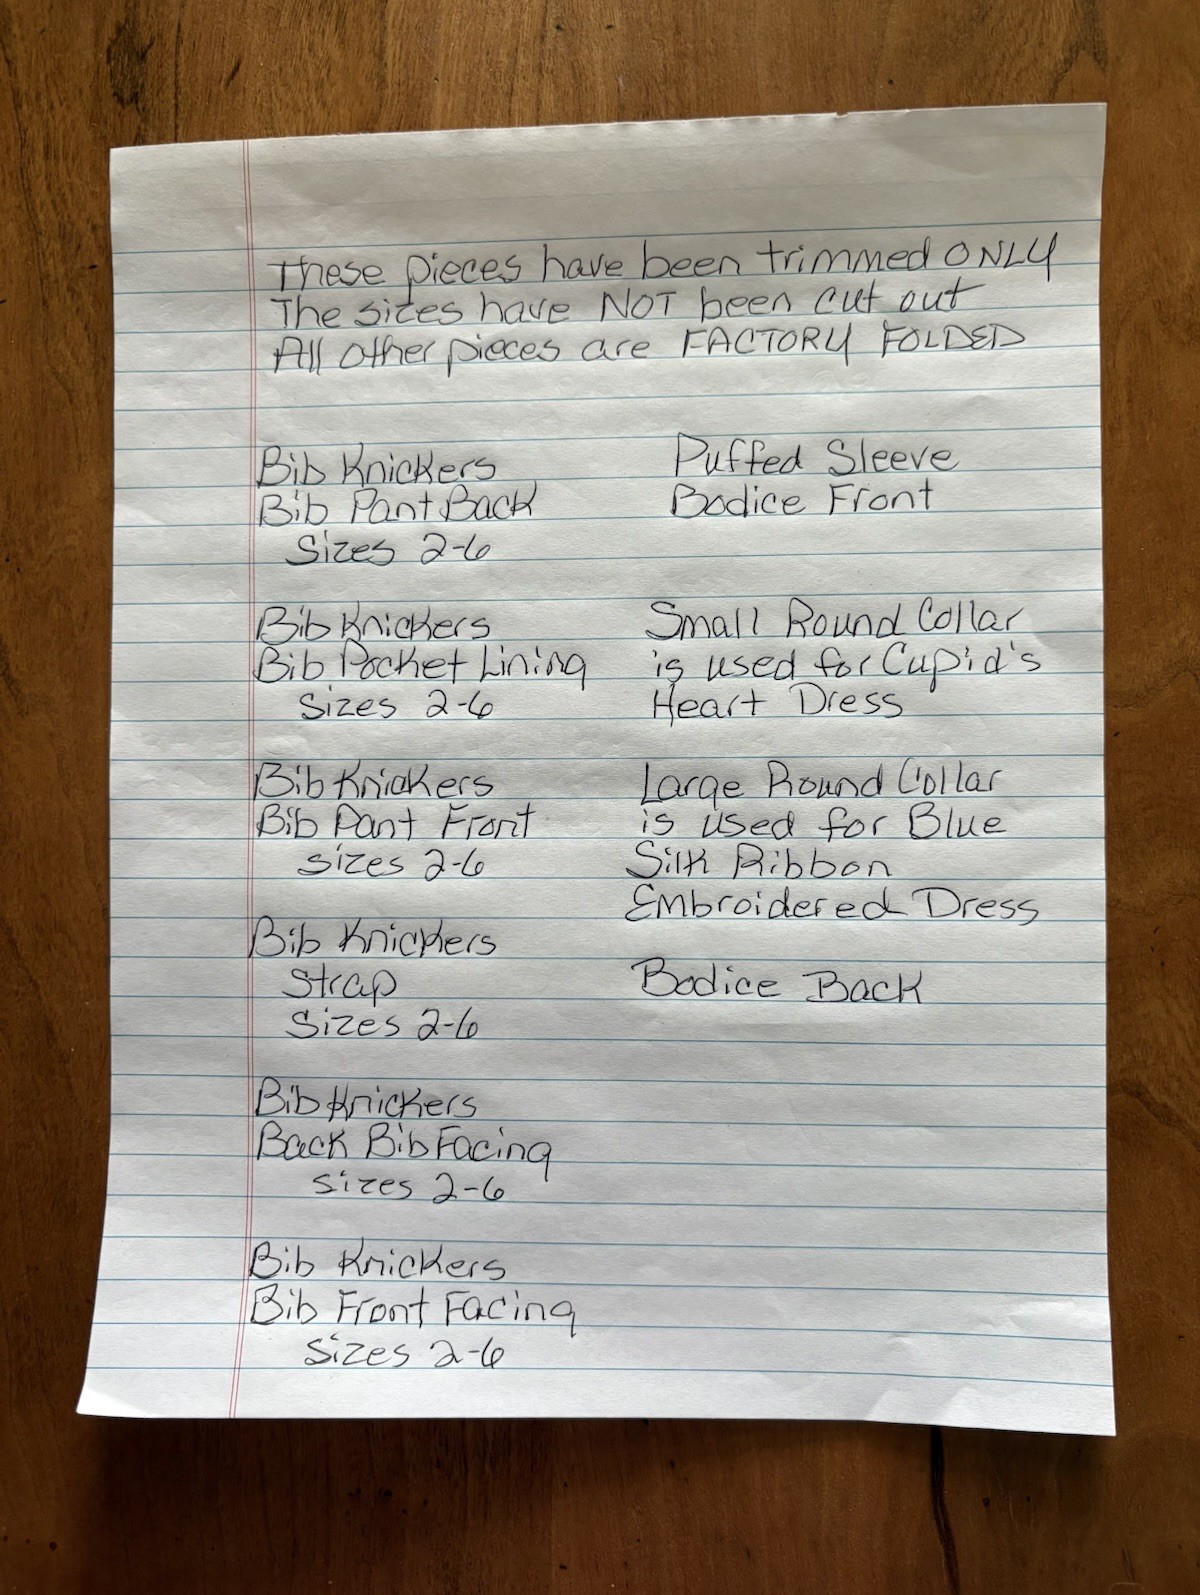 These pieces have been trimmed ONLY
The sizes have NOT been cut out
All other pieces are FACTORY FOLDED
Bib Knickers
Bib Pant Back
Sizes 2-6
Bib Knickers
Bib Pocket Lining
Sizes 2-6
Bib Knickers
Bib Pant Front
Sizes 2-6
Bib Knickers
Strap
Sizes 2-6
Bib Knickers
Back Bib Facing
Sizes 2-6
Bib Knickers
Bib Front Facing
Sizes 2-6
Puffed Sleeve
Bodice Front
Small Round Collar
is used for Cupid's
Heart Dress
Large Round Collar
is used for Blue
Silk Ribbon
Embroidered Dress
Bodice Back